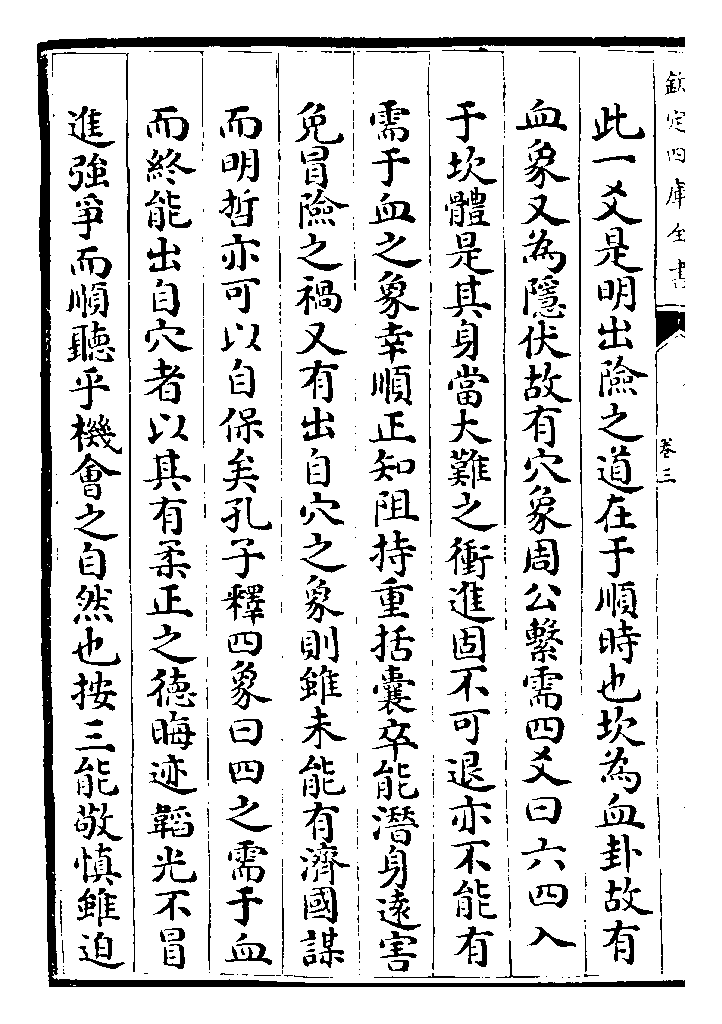 欽定四庫全書
卷三
此一爻是明出險之道在于順時也坎為血卦故有
血象又為隱伏故有穴象周公繫需四爻曰六四入
于坎體是其身當大難之衝進固不可退亦不能有
需于血之象幸順正知阻持重括囊卒能潛身遠害
免冒險之禍又有出自穴之象則雖未能有濟國謀
而明哲亦可以自保矣孔子釋四象曰四之需于血
而終能出自穴者以其有柔正之德晦迹韜光不冒
進強爭而順聽乎機會之自然也按三能敬慎雖迫